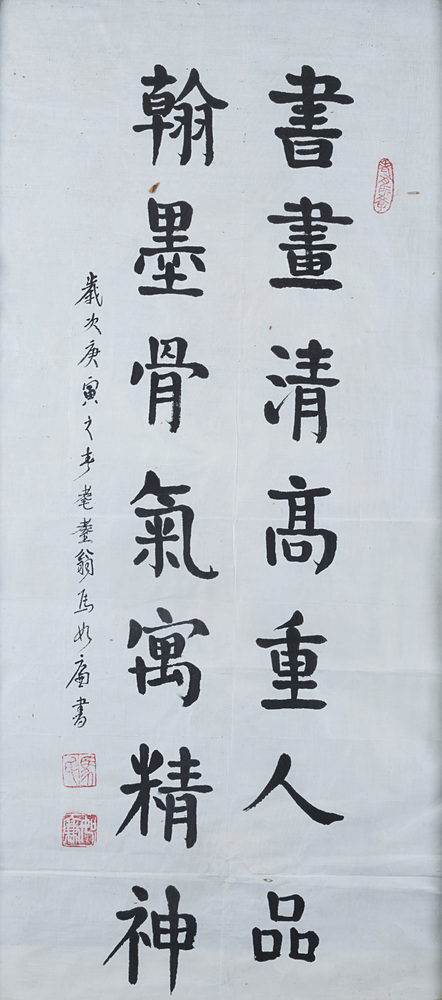 書畫清高重人品
翰墨骨氣寓精神
歲次庚寅之春耄耋翁馬如廣書